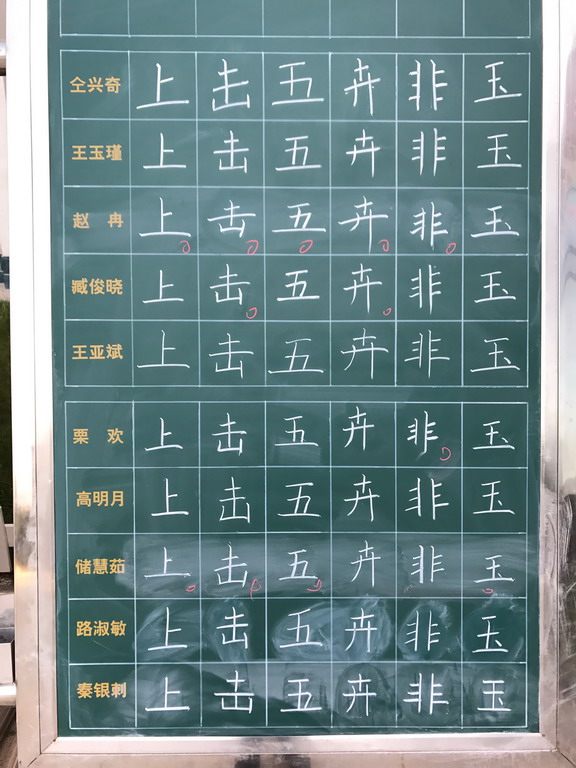 仝兴奇 上 击 五 卉 非 玉
王玉瑾 上 击 五 卉 非 玉
赵冉 上 击 五 卉 非 玉
臧俊晓 上 击 五 卉 非 玉
王亚斌 上 击 五 卉 非 玉
栗欢 上 击 五 卉 非 玉
高明月 上 击 五 卉 非 玉
储慧茹 上 击 五 卉 非 玉
路淑敏 上 击 五 卉 非 玉
秦银刺 上 击 五 卉 非 玉